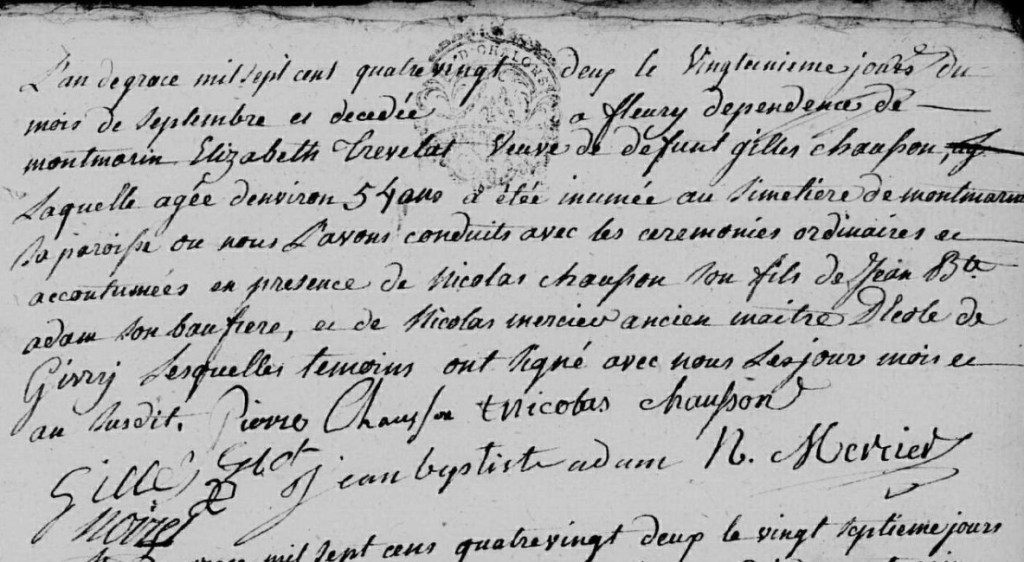 L'an de grace mil sept cent quatre vingt deux le Vingteinieme jours du
mois de septembre es decedée a fleury dependence de
montmarin Elizabeth Trevelat Veuve de defunt gilles chausson,
Laquelle agée d'environ 54 ans a étée inumée au simetiere de montmarin
sa paroisse ou nous L'avons conduits avec les ceremonies ordinaires et
accontumées en presence de Nicolas chausson son fils de Jean Bte
adam son baufrere, et de Nicolas mercier ancien maitre D'Ecole de
Givry Lesquelles temoins ont signé avec nous Les jour mois et
an susdit. Pierre Chausson Nicolas chausson
Gille jean baptiste adam N. Mercier
Noizet
mil sept cens quatre vingt deux le vingt septieme jours